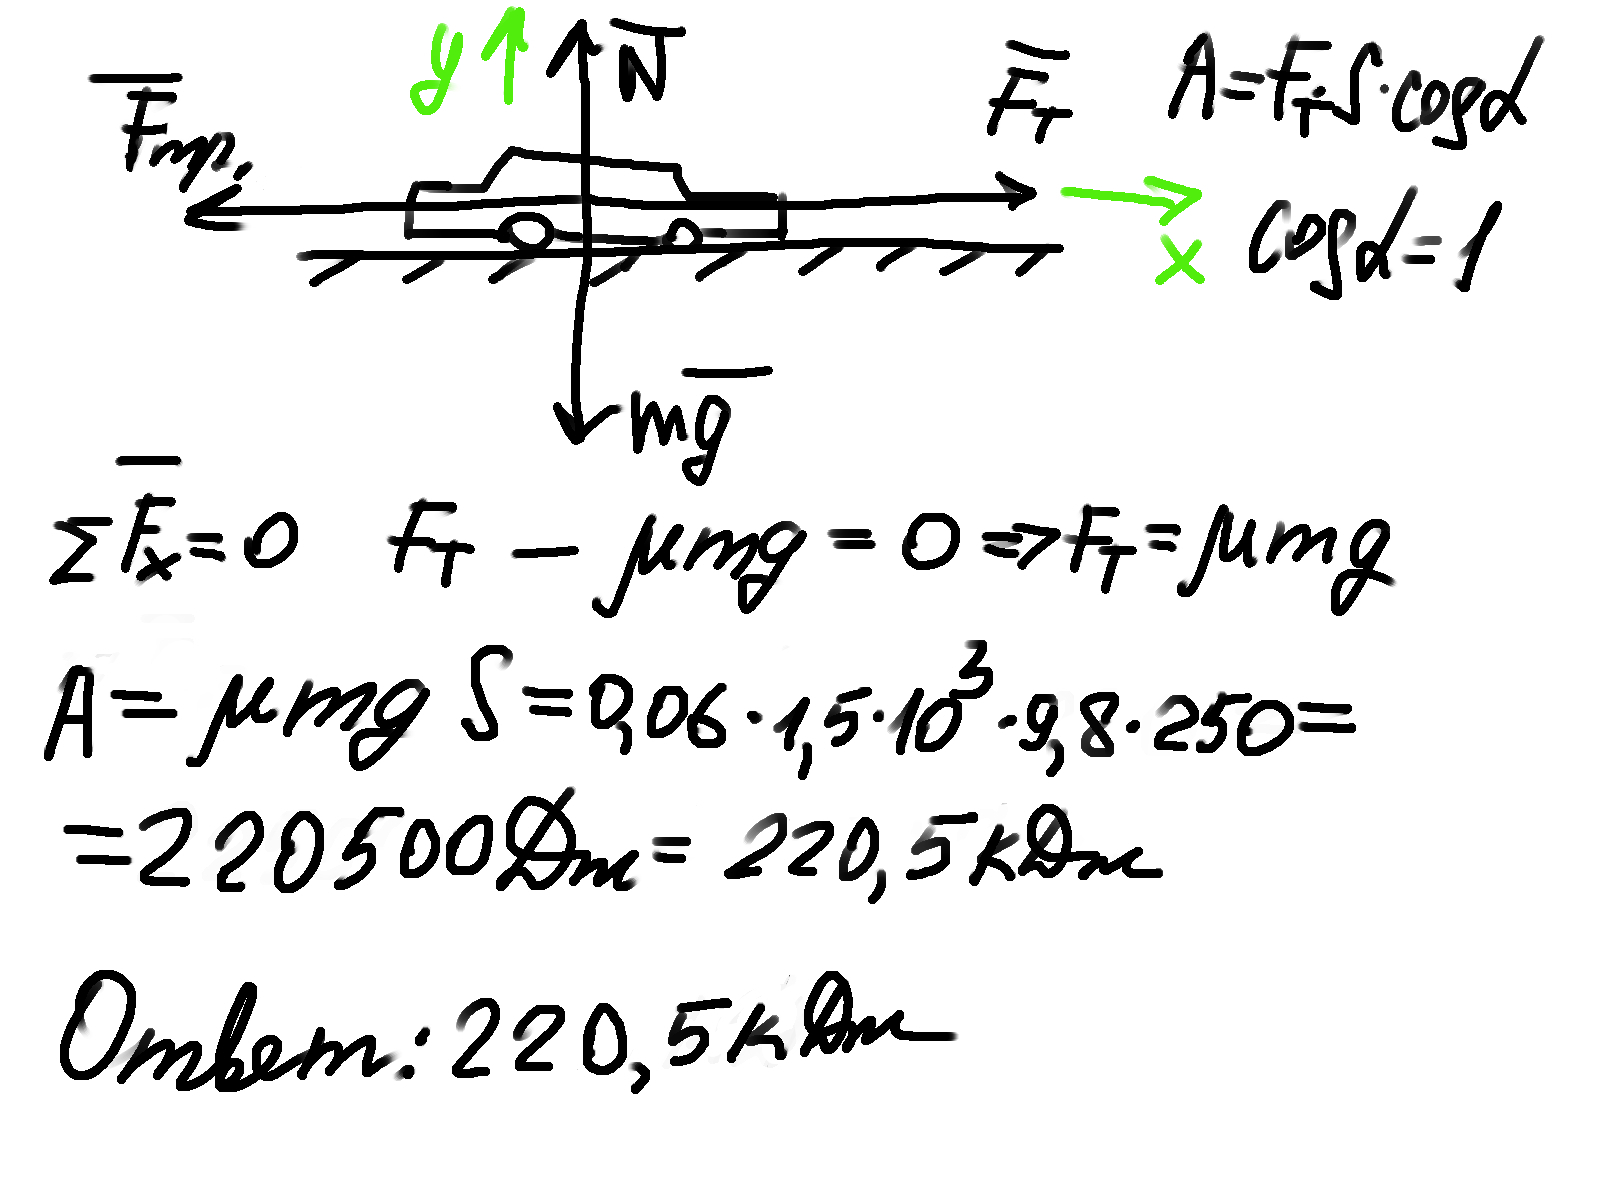 y N̅ F̅т A = Fт·S·cosα
F̅тр.
x cosα = 1
mg̅
ΣF̅x = 0 Fт — μmg = 0 => Fт = μmg
A = μmg S = 0,06·1,5·10³·9,8·250 =
= 220500Дж = 220,5кДж
Ответ: 220,5кДж